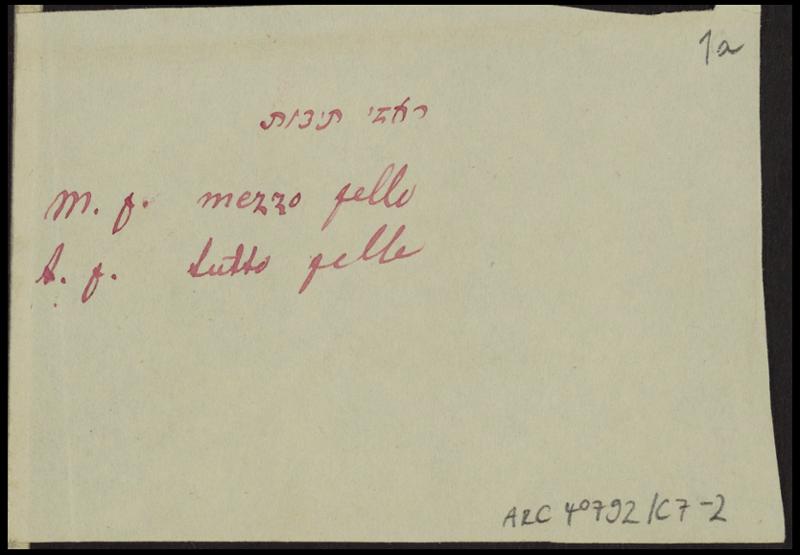 1a
ראשי תיבות
m. p. mezzo pelle
t. p. tutto pelle
ARC 4º 792 /C7-2